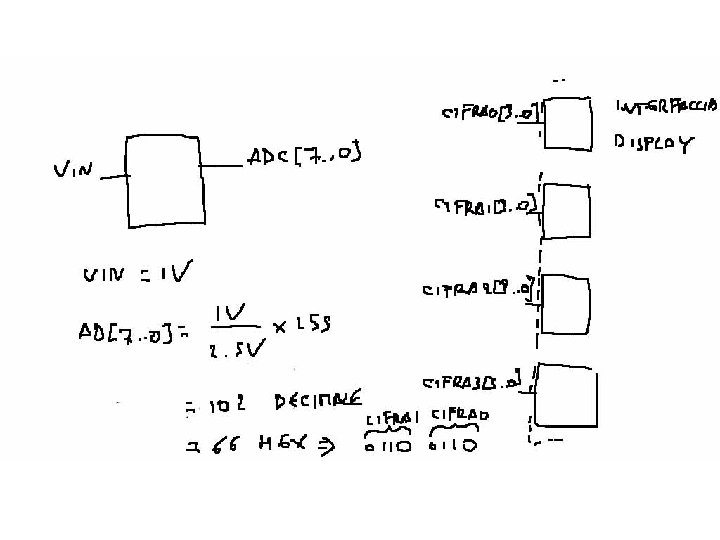 VIN
ADC[7..0]
VIN = 1V
AD[7..0] = 1V / 2.5V × 255
= 102 DECIMALE
= 66 HEX ⇒ 0110 0110
CIFRA1 CIFRA0
CIFRA0[3..0]
INTERFACCIA
DISPLAY
CIFRA1[3..0]
CIFRA2[3..0]
CIFRA3[3..0]